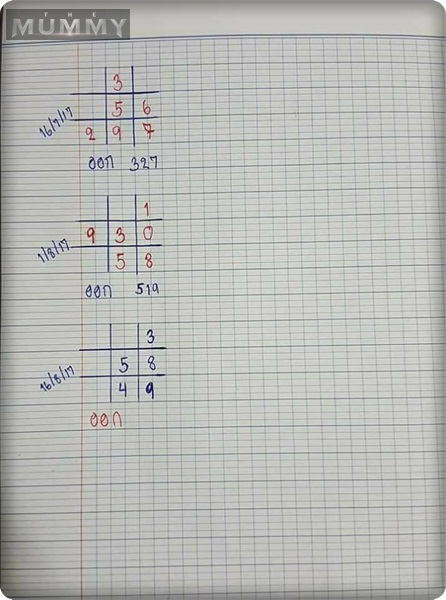 THE
MUMMY
3
16/7/17
5 6
2 9 7
ออก 327
1
1/8/17
9 3 0
5 8
ออก 519
3
16/8/17
5 8
4 9
ออก